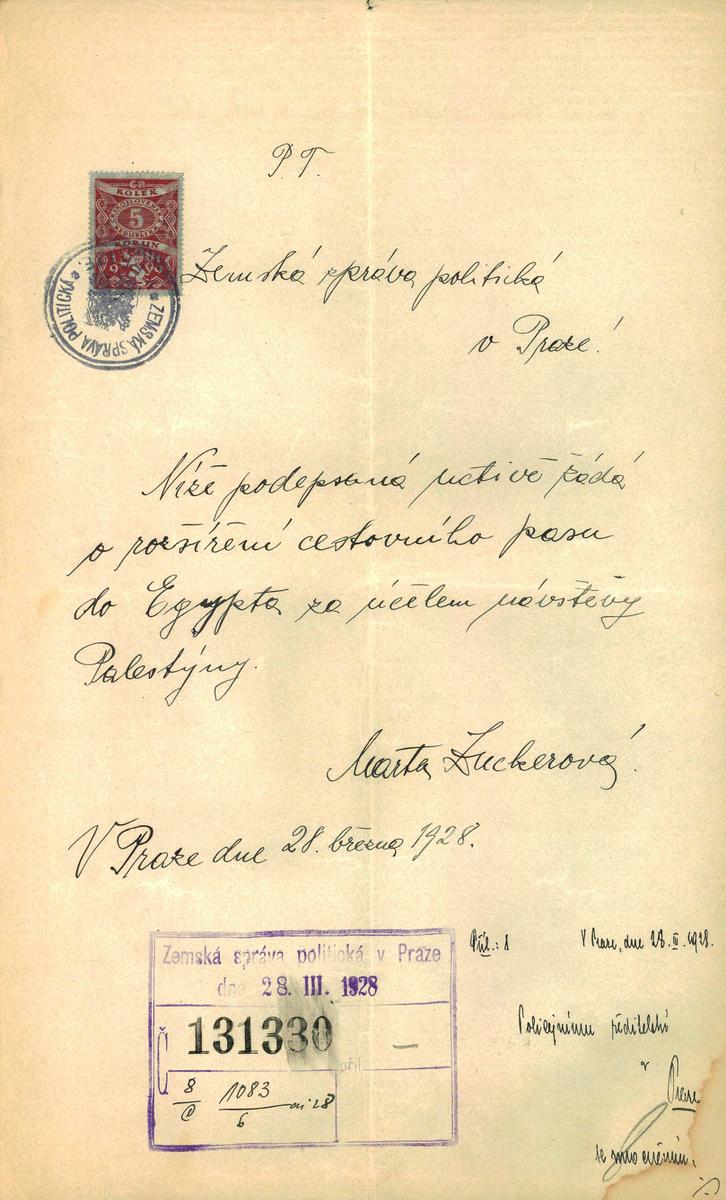 P. T.
ČS.
KOLEK
5
KORUN
ZEMSKÁ SPRÁVA POLITICKÁ
Zemská správa politická
v Praze!
Níže podepsaná uctivě žádá
o rozšíření cestovního pasu
do Egypta za účelem návštěvy
Palestýny.
Marta Zuckerová.
V Praze dne 28. března 1928.
Zemská správa politická v Praze
dne 28. III. 1928
Č 131330
příl. —
8 1083
6
Příl.: 1 V Praze, dne 28. III. 1928.
Policejnímu ředitelství
v
Praze